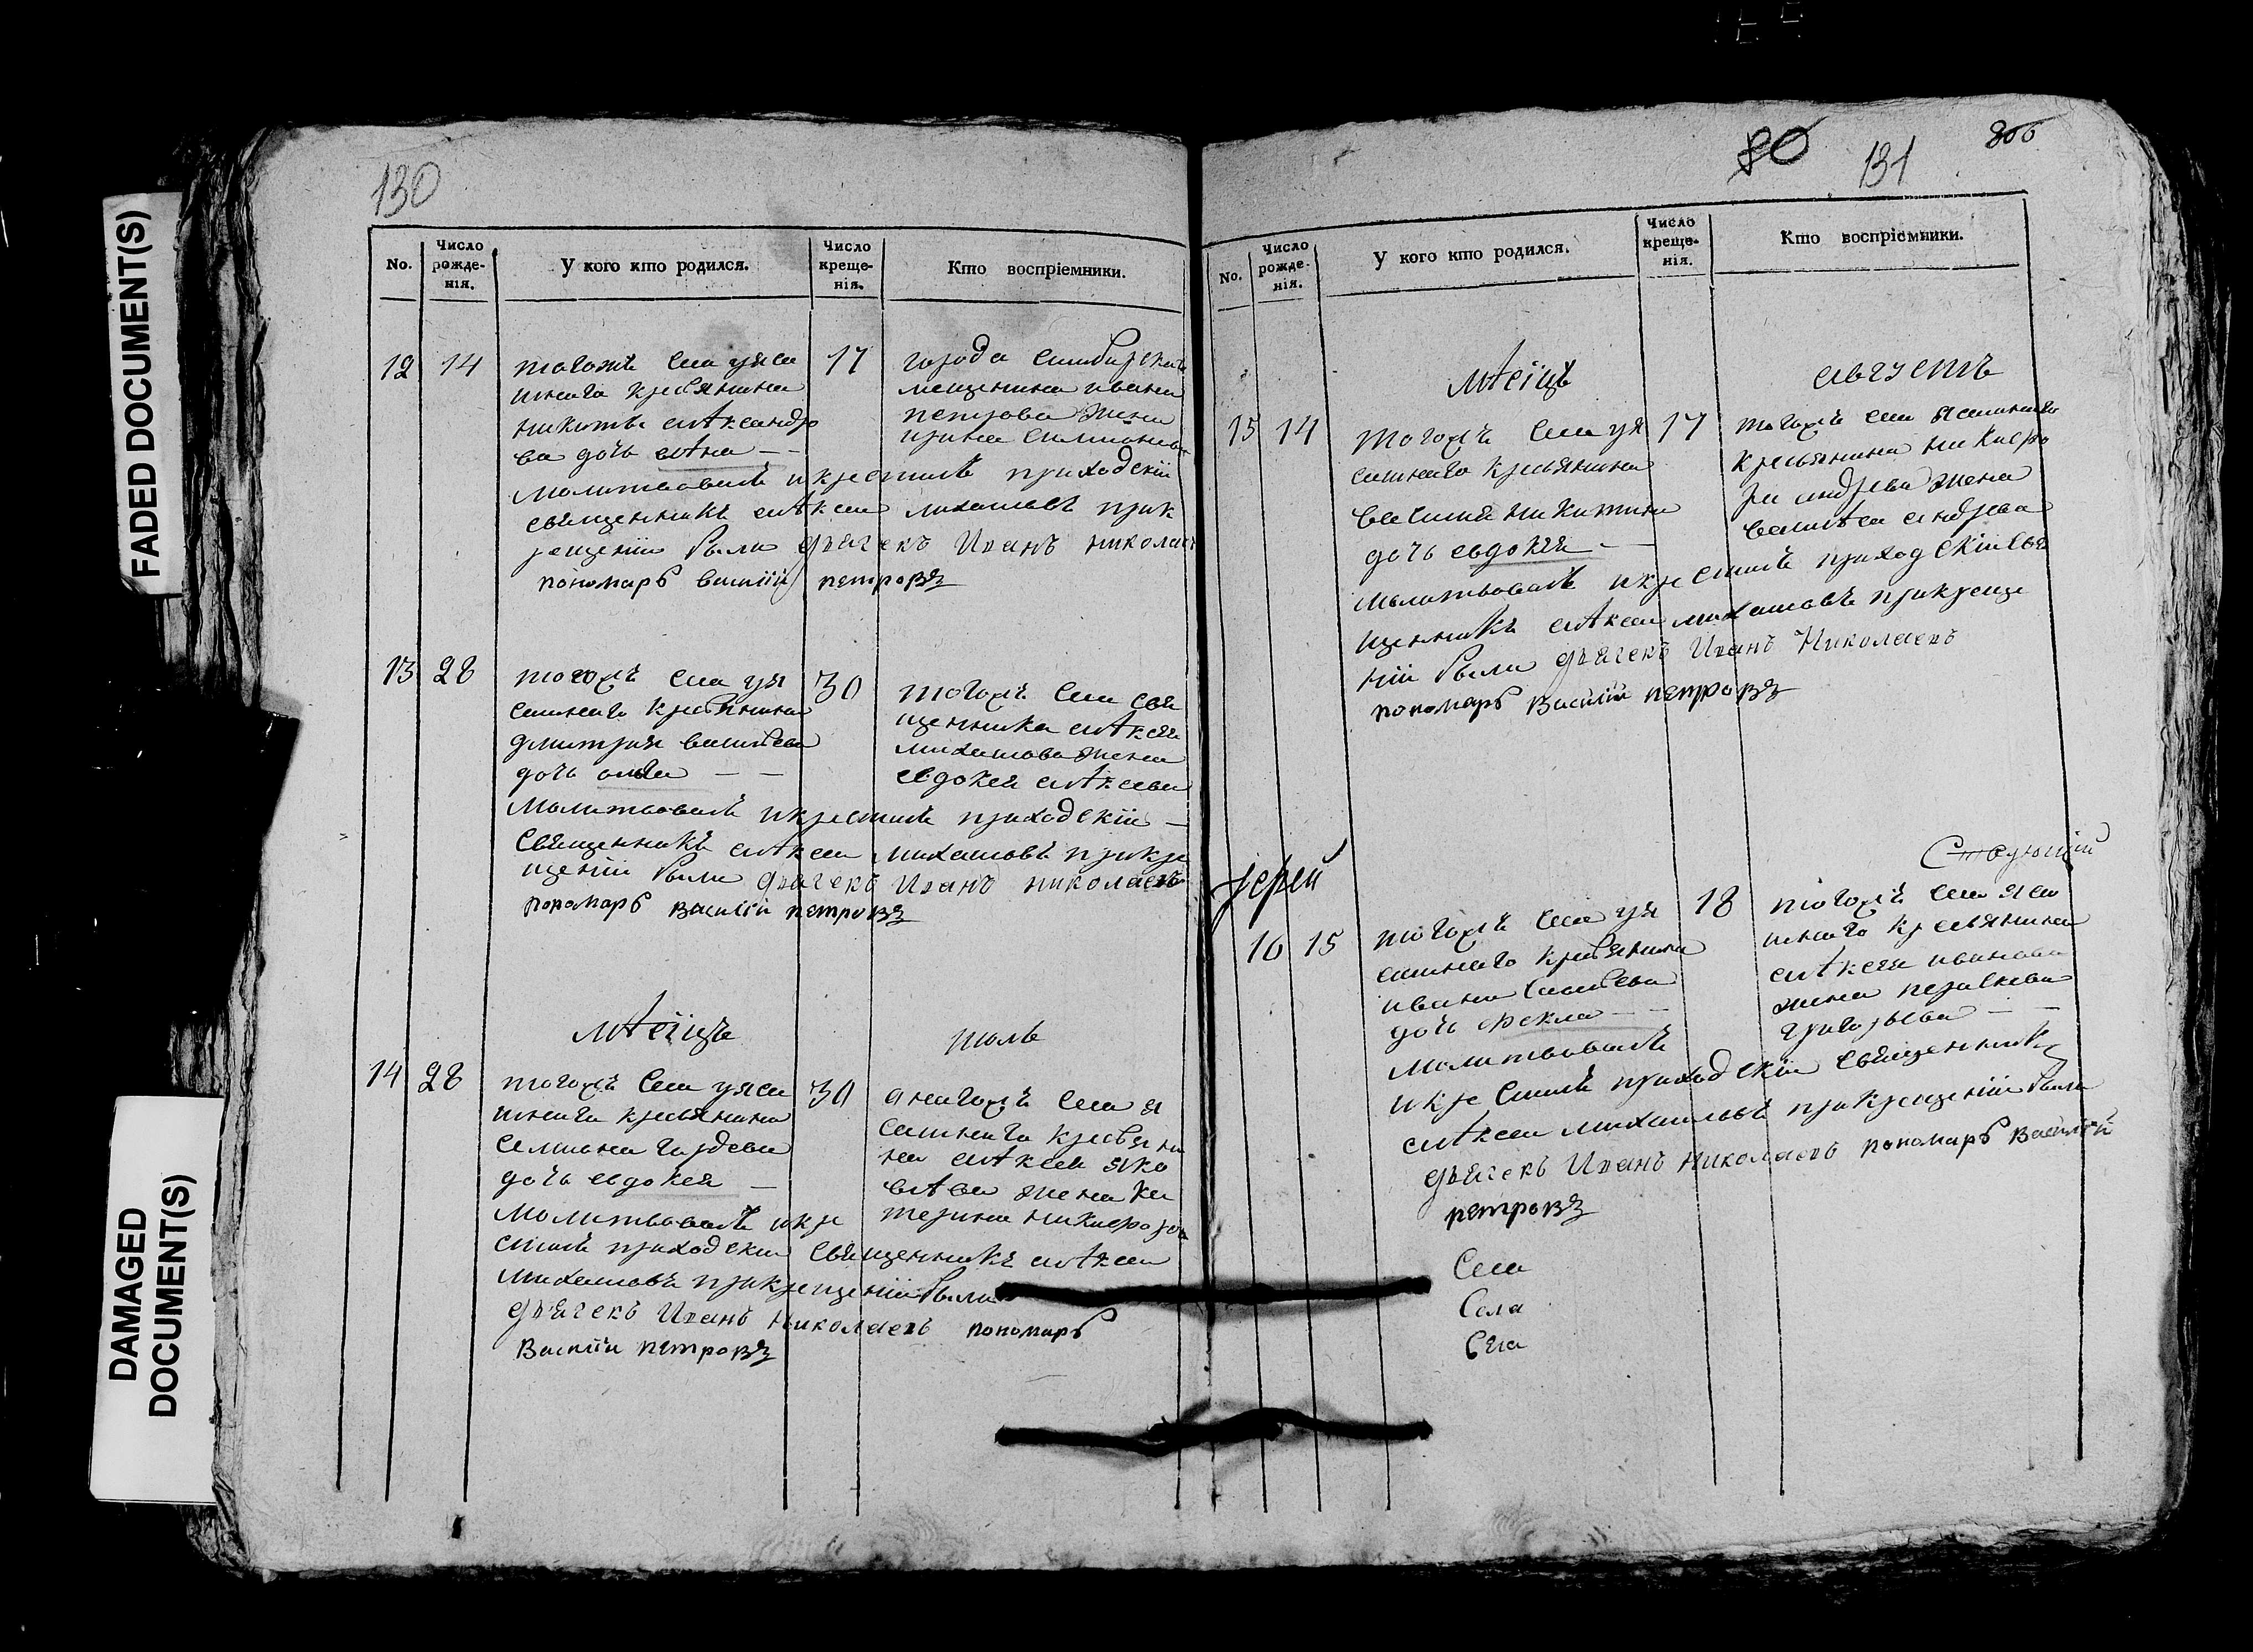 FADED DOCUMENT(S)
DAMAGED DOCUMENT(S)
130
No.
Число рожде-нія.
У кого кто родился.
Число креще-нія.
Кто воспріемники.
12
14
тогожъ села уяса
шнаго кресьянина
никиты алѣксандро
ва дочь анна
17
города симбирска
мещенина ивана
петрова жена
ирина симионова
молитвовалъ и крестилъ приходскій
священникъ алѣксеи михаиловъ прик
рещеніи были дьячекъ Иванъ николаевъ
пономарь василій петровъ
13
28
тогожъ села уя
сашнаго кресьянина
дмитрия васильева
дочь
30
тогожъ села свя
щенника алѣксея
михаилова жена
евдокея алѣксеева
молитвовалъ и крестилъ приходскіи
священникъ алѣксеи михаиловъ прикре
щеніи были дьячекъ Иванъ николаевъ
пономарь василій петровъ
мѣсіцъ
июль
14
28
тогожъ села уяса
шнаго кресьянина
семиона гордева
дочь евдокея
30
тогожъ села я
сашнаго кресьяни
на алѣксея яко
влѣва жена ка
терина никифорова
молитвовалъ и кре
стилъ приходскіи священникъ алѣксеи
михаиловъ прикрещеніи были
дьячекъ Иванъ николаевъ пономарь
Василіи петровъ
80
131
No.
Число рожде-нія.
У кого кто родился.
Число креще-нія.
Кто воспріемники.
мѣсіцъ
августъ
15
14
тогожъ села уя
сашнаго кресьянина
василия никитина
дочь евдокея
17
тогожъ села ясашнаго
кресьянина никифо
ра андрева жена
василиса андрева
молитвовалъ и крестилъ приходскіи свя
щенникъ алѣксеи михаиловъ прикреще
ніи были дьячекъ Иванъ Николаевъ
пономарь Василій петровъ
іерей
16
15
тогожъ села уя
сашнаго кресьянина
ивана савельева
дочь фекла
18
тогожъ села яса
шнаго кресьянина
алѣксея иванова
жена
григорьева
молитвовалъ
и крестилъ приходскіи священникъ
алѣксеи михаиловъ прикрещеніи были
дьячекъ Иванъ николаевъ пономарь Василій
петровъ
Села
Села